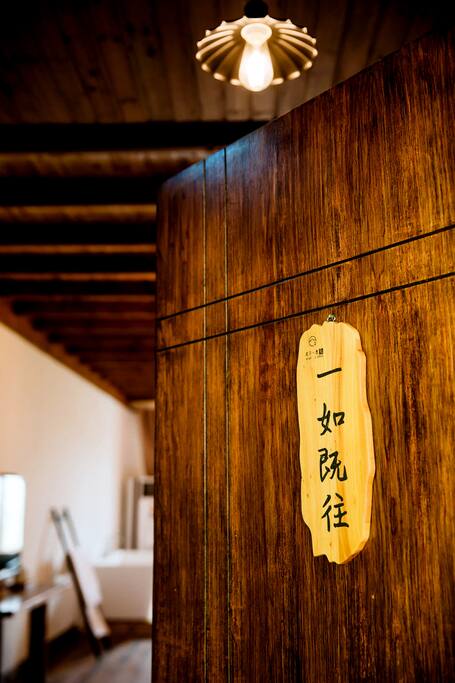 一如既往